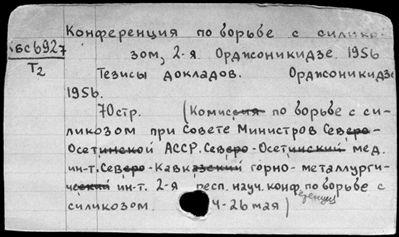 Конференция по борьбе с силико-
зом, 2-я. Орджоникидзе. 1956
БС6927
Т2
Тезисы докладов. Орджоникидзе
1956.
70стр. (Комиссия по борьбе с си-
ликозом при Совете Министров Северо-
Осетинской АССР. Северо-Осетинский мед.
ин-т. Северо-Кавказский горно-металлурги-
ческий ин-т. 2-я респ. науч. конференция по борьбе с
силикозом. 4-26 мая)